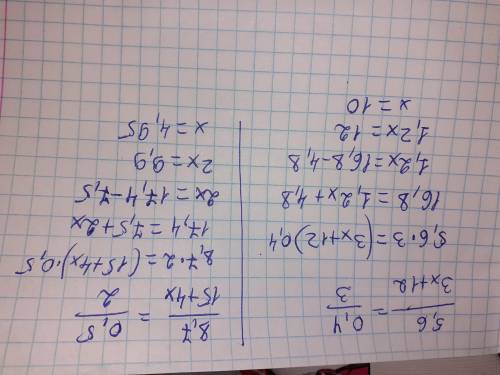 5,6/3x+12 = 0,4/3
5,6·3=(3x+12)0,4
16,8=1,2x+4,8
1,2x=16,8-4,8
1,2x=12
x=10
8,7/15+4x = 0,5/2
8,7·2=(15+4x)·0,5
17,4=7,5+2x
2x=17,4-7,5
2x=9,9
x=4,95